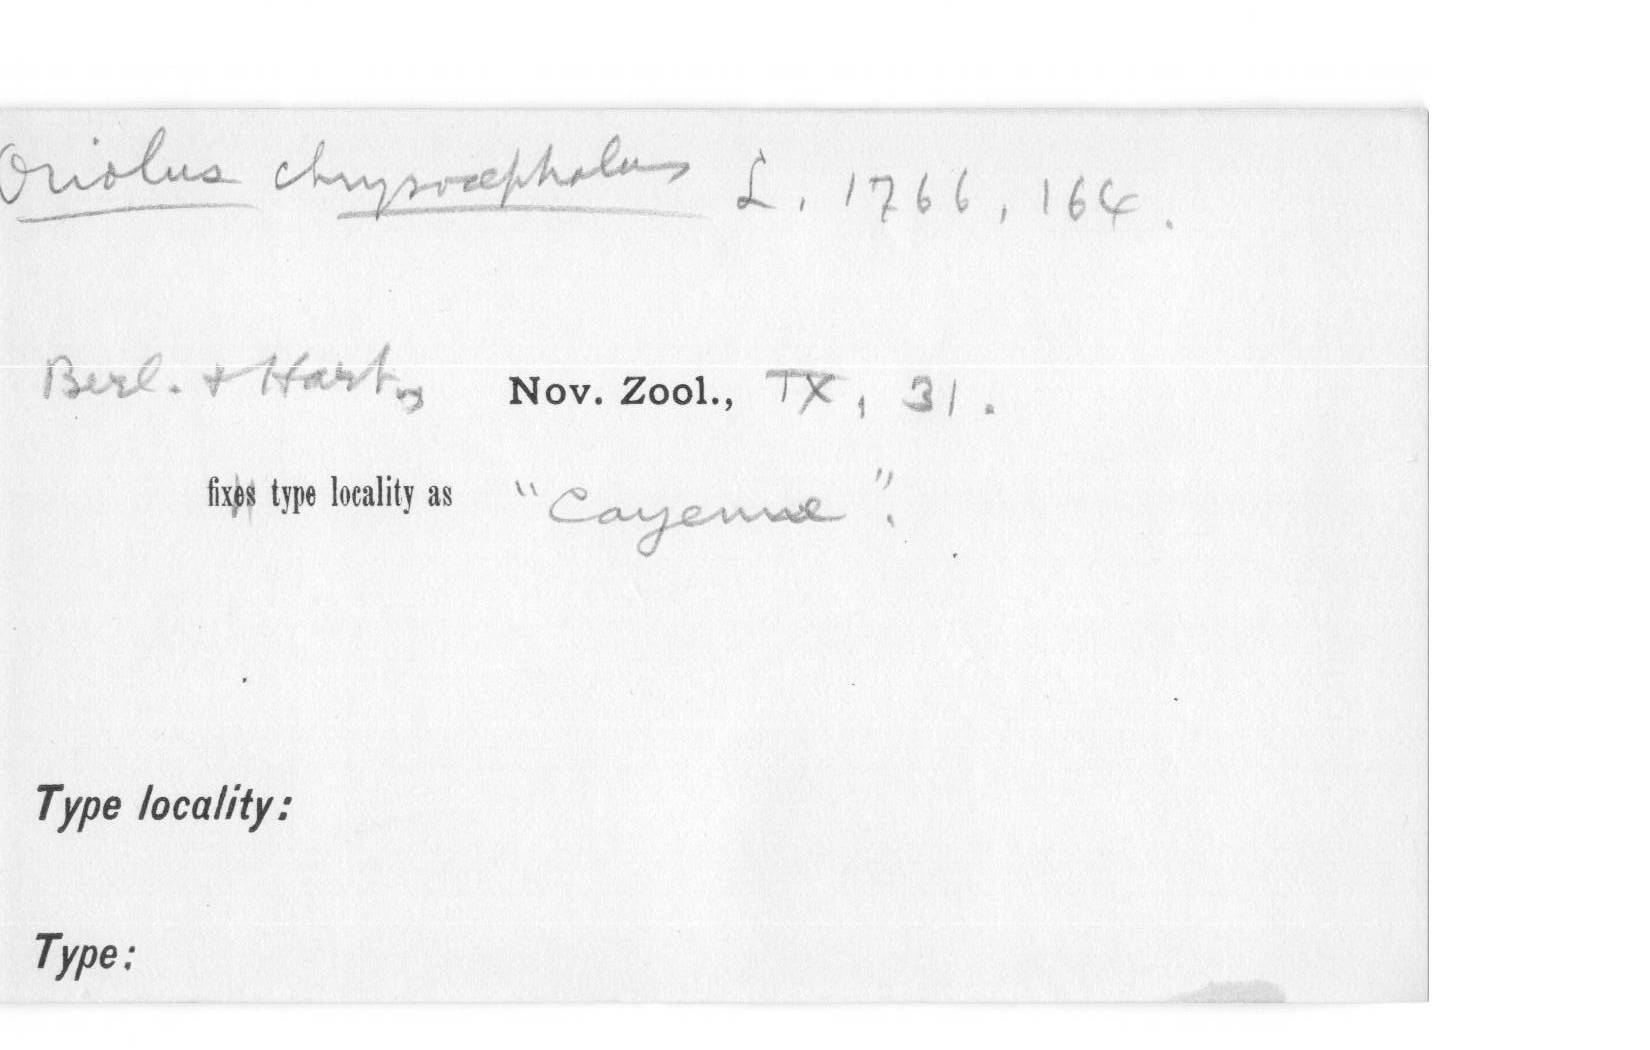 Oriolus chrysocephalus L. 1766, 164.
Berl. & Hart., Nov. Zool., IX, 31.
fixes type locality as "Cayenne".
Type locality:
Type: